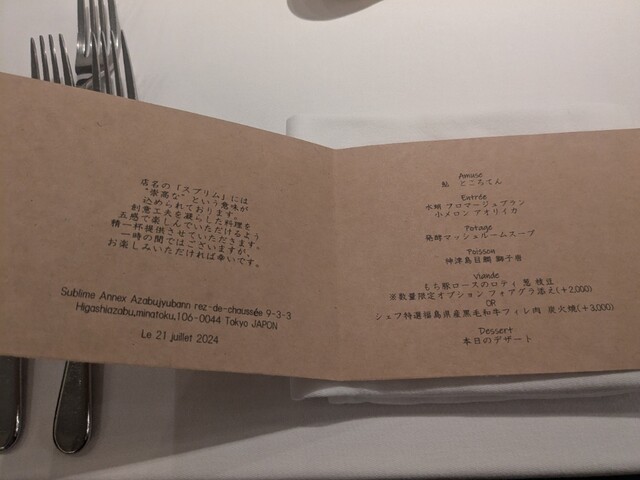 店名の「スブリム」には
"崇高な" という意味が
込められております。
創意工夫を凝らした料理を
五感で楽しんでいただけるよう
精一杯提供させていただきます。
一時の間ではございますが、
お楽しみいただければ幸いです。
Sublime Annex Azabujyubann rez-de-chaussée 9-3-3
Higashiazabu,minatoku,106-0044 Tokyo JAPON
Le 21 juillet 2024
Amuse
鮎 ところてん
Entrée
水蛸 フロマージュブラン
小メロン アオリイカ
Potage
発酵マッシュルームスープ
Poisson
沖津島目鯛 獅子唐
Viande
もち豚ロースのロティ 葱 枝豆
※数量限定オプション フォアグラ添え(+2,000)
OR
シェフ特選福島県産黒毛和牛フィレ肉 炭火焼(+3,000)
Dessert
本日のデザート